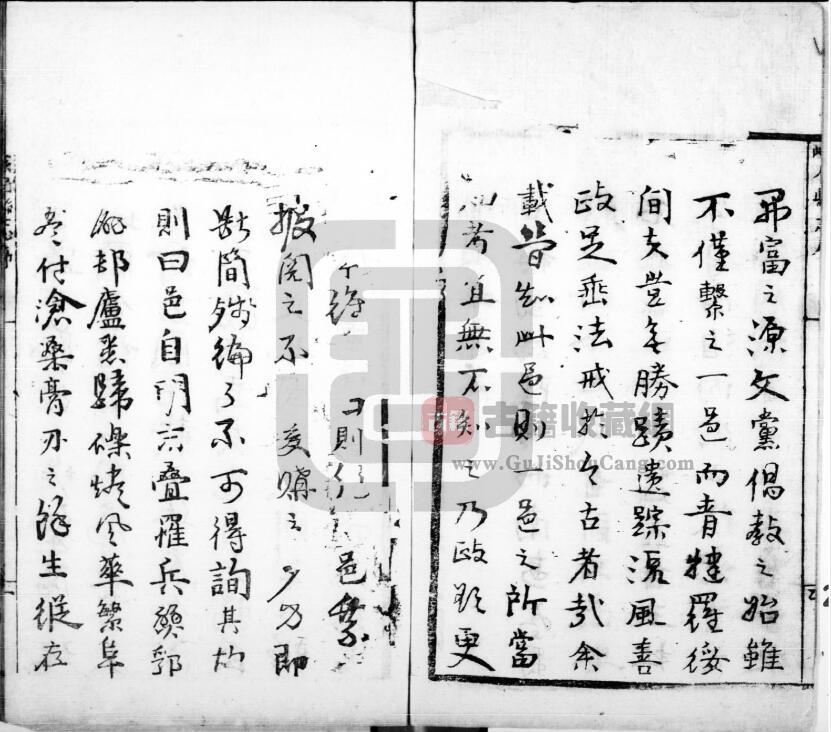 富之源文黨倡教之始雖
不僅繫之一邑而青犍羅綏
間夫豈無勝蹟遺踪流風善
政足垂法戒於今古者哉余
載皆知此邑則一邑之所當
者宜無不知之乃政欲更
則 邑
披閱之不 爰購之 即
斷簡殘編了不可得詢其故
則曰邑自明末疊罹兵燹郭
郵部廬悉歸礫燼風華繁阜
付滄桑膏刃之餘生縱存
古籍
古籍收藏網
www.GuJiShouCang.com